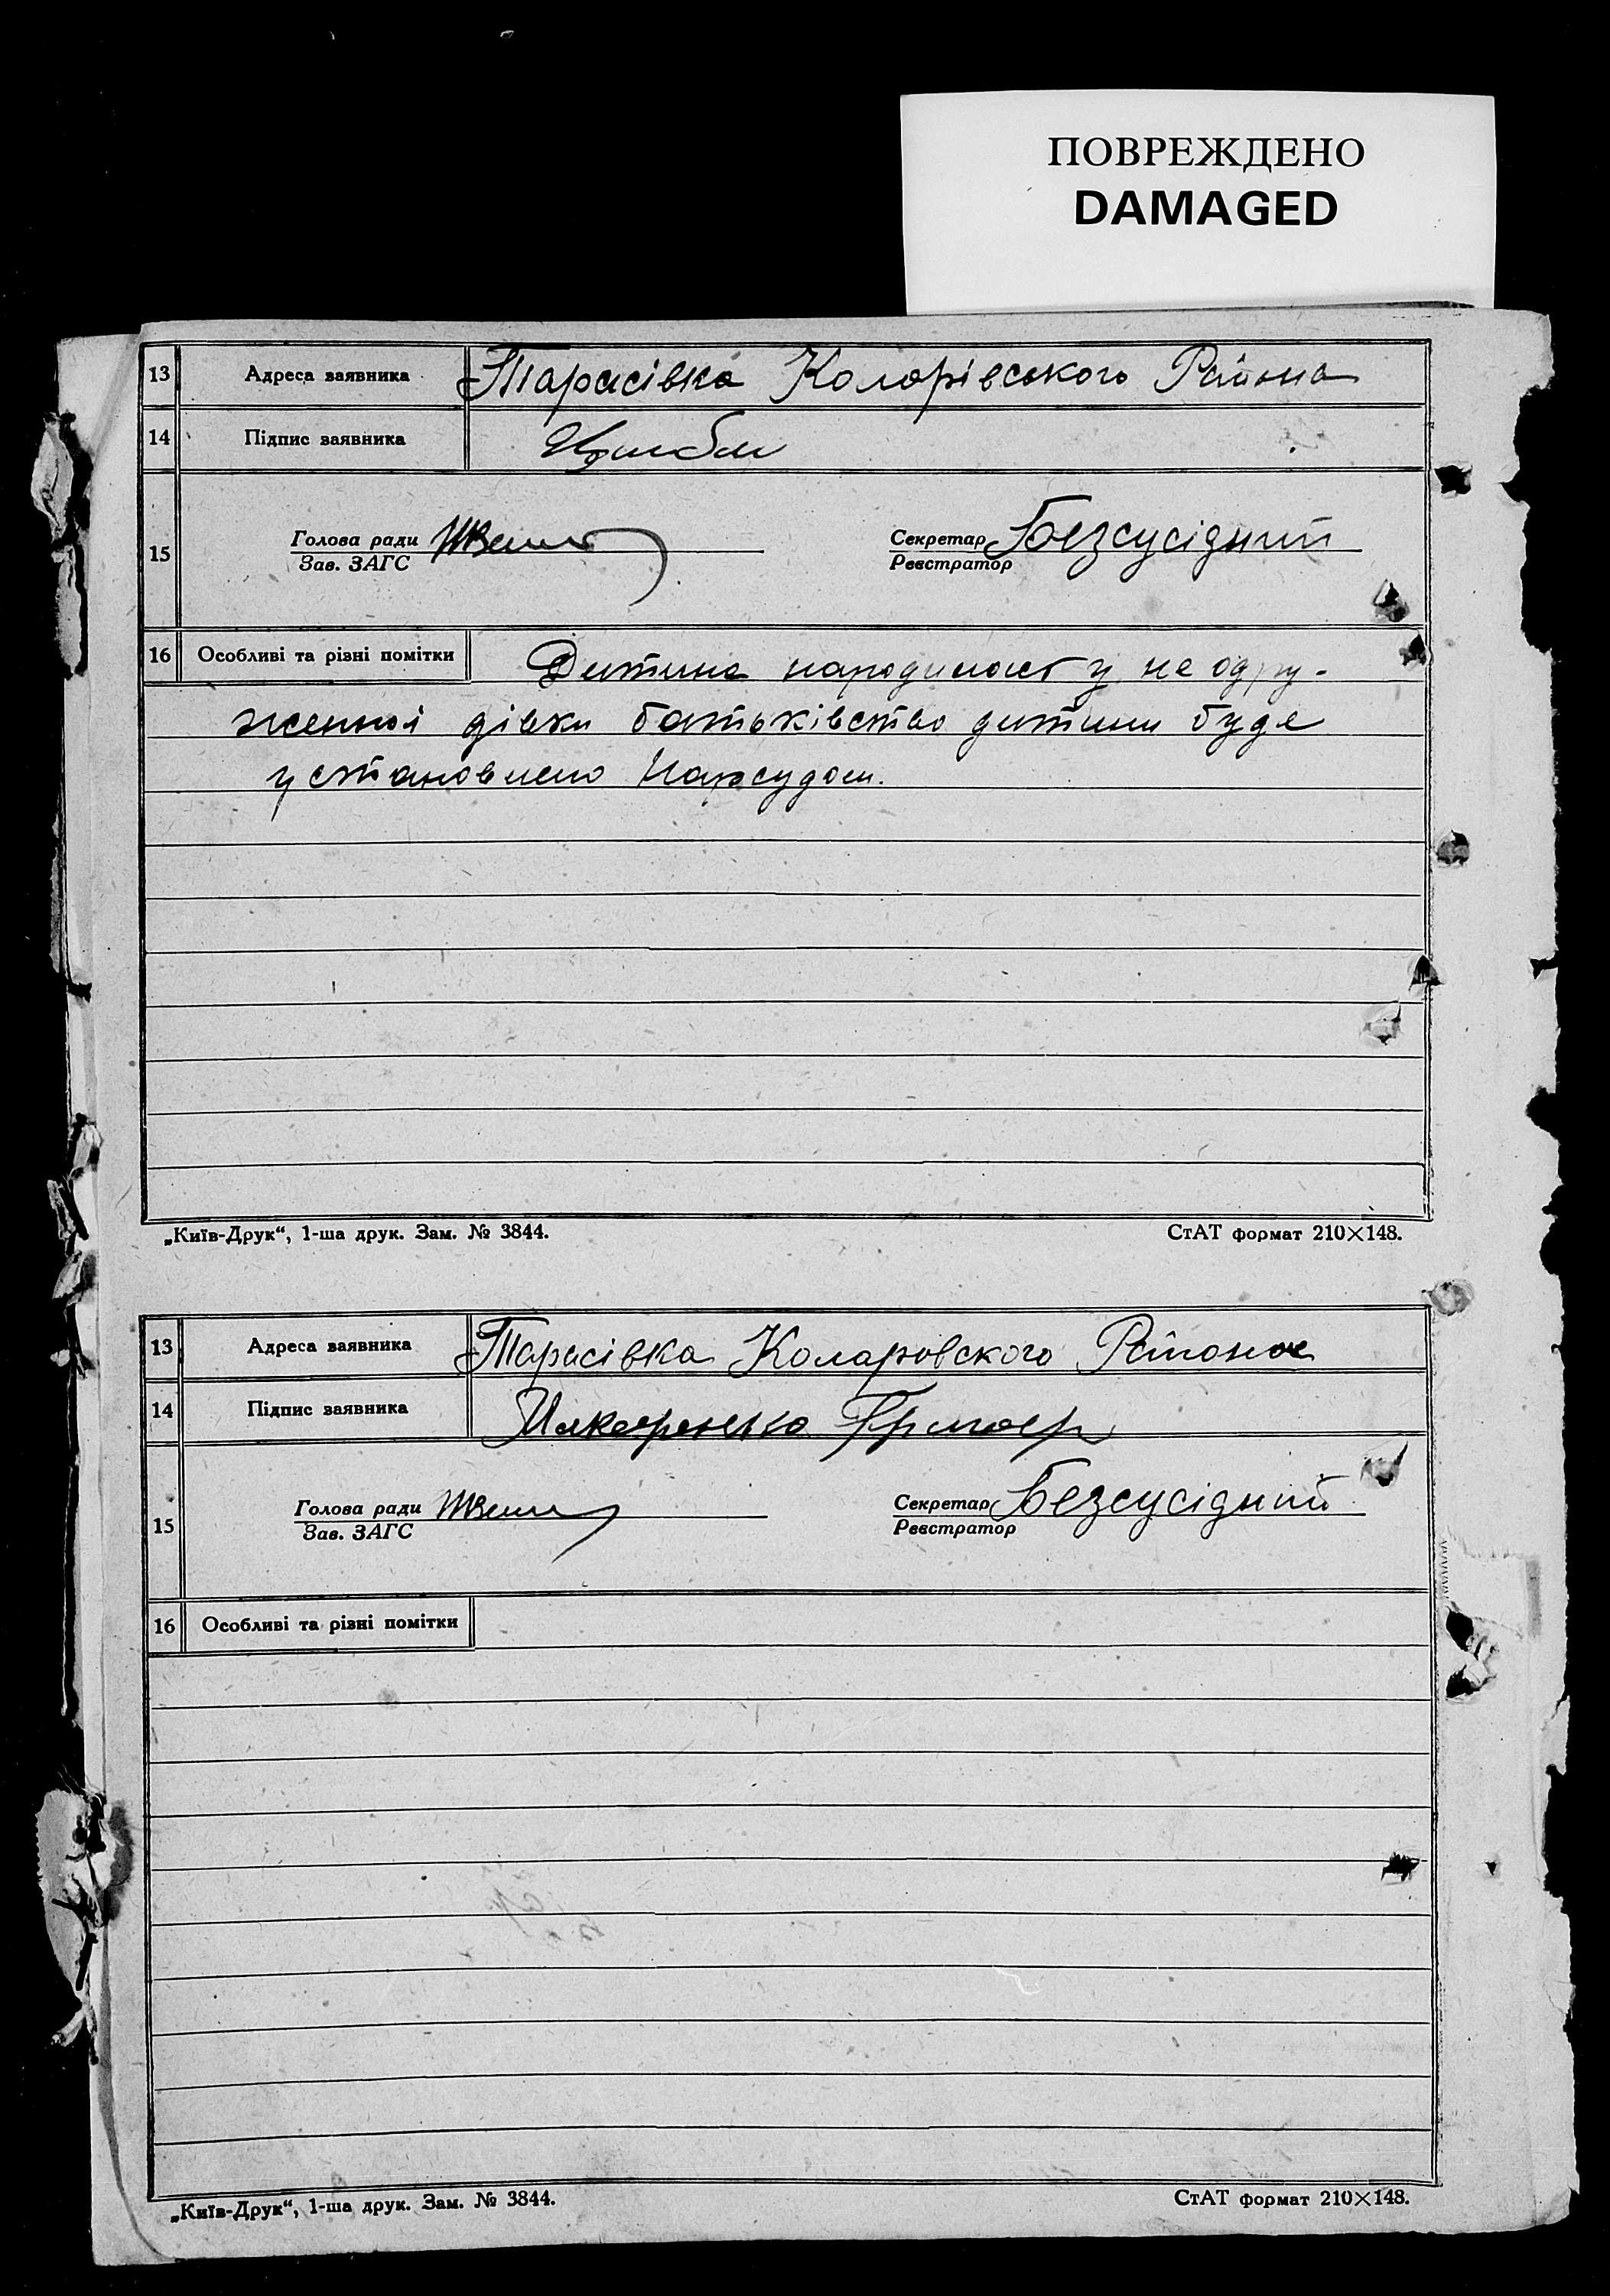 ПОВРЕЖДЕНО
DAMAGED
13 Адреса заявника Тарасівка Коларівського Района
14 Підпис заявника
15 Голова ради Секретар Безсусідний
Зав. ЗАГС Реєстратор
16 Особливі та різні помітки Дитина народилась у не одру-
женної дівки батьківство дитини буде
установлено Нарсудом.
„Київ-Друк“, 1-ша друк. Зам. № 3844. СтАТ формат 210×148.
13 Адреса заявника Тарасівка Коларовского Района
14 Підпис заявника
15 Голова ради Секретар Безсусідний
Зав. ЗАГС Реєстратор
16 Особливі та різні помітки
„Київ-Друк“, 1-ша друк. Зам. № 3844. СтАТ формат 210×148.